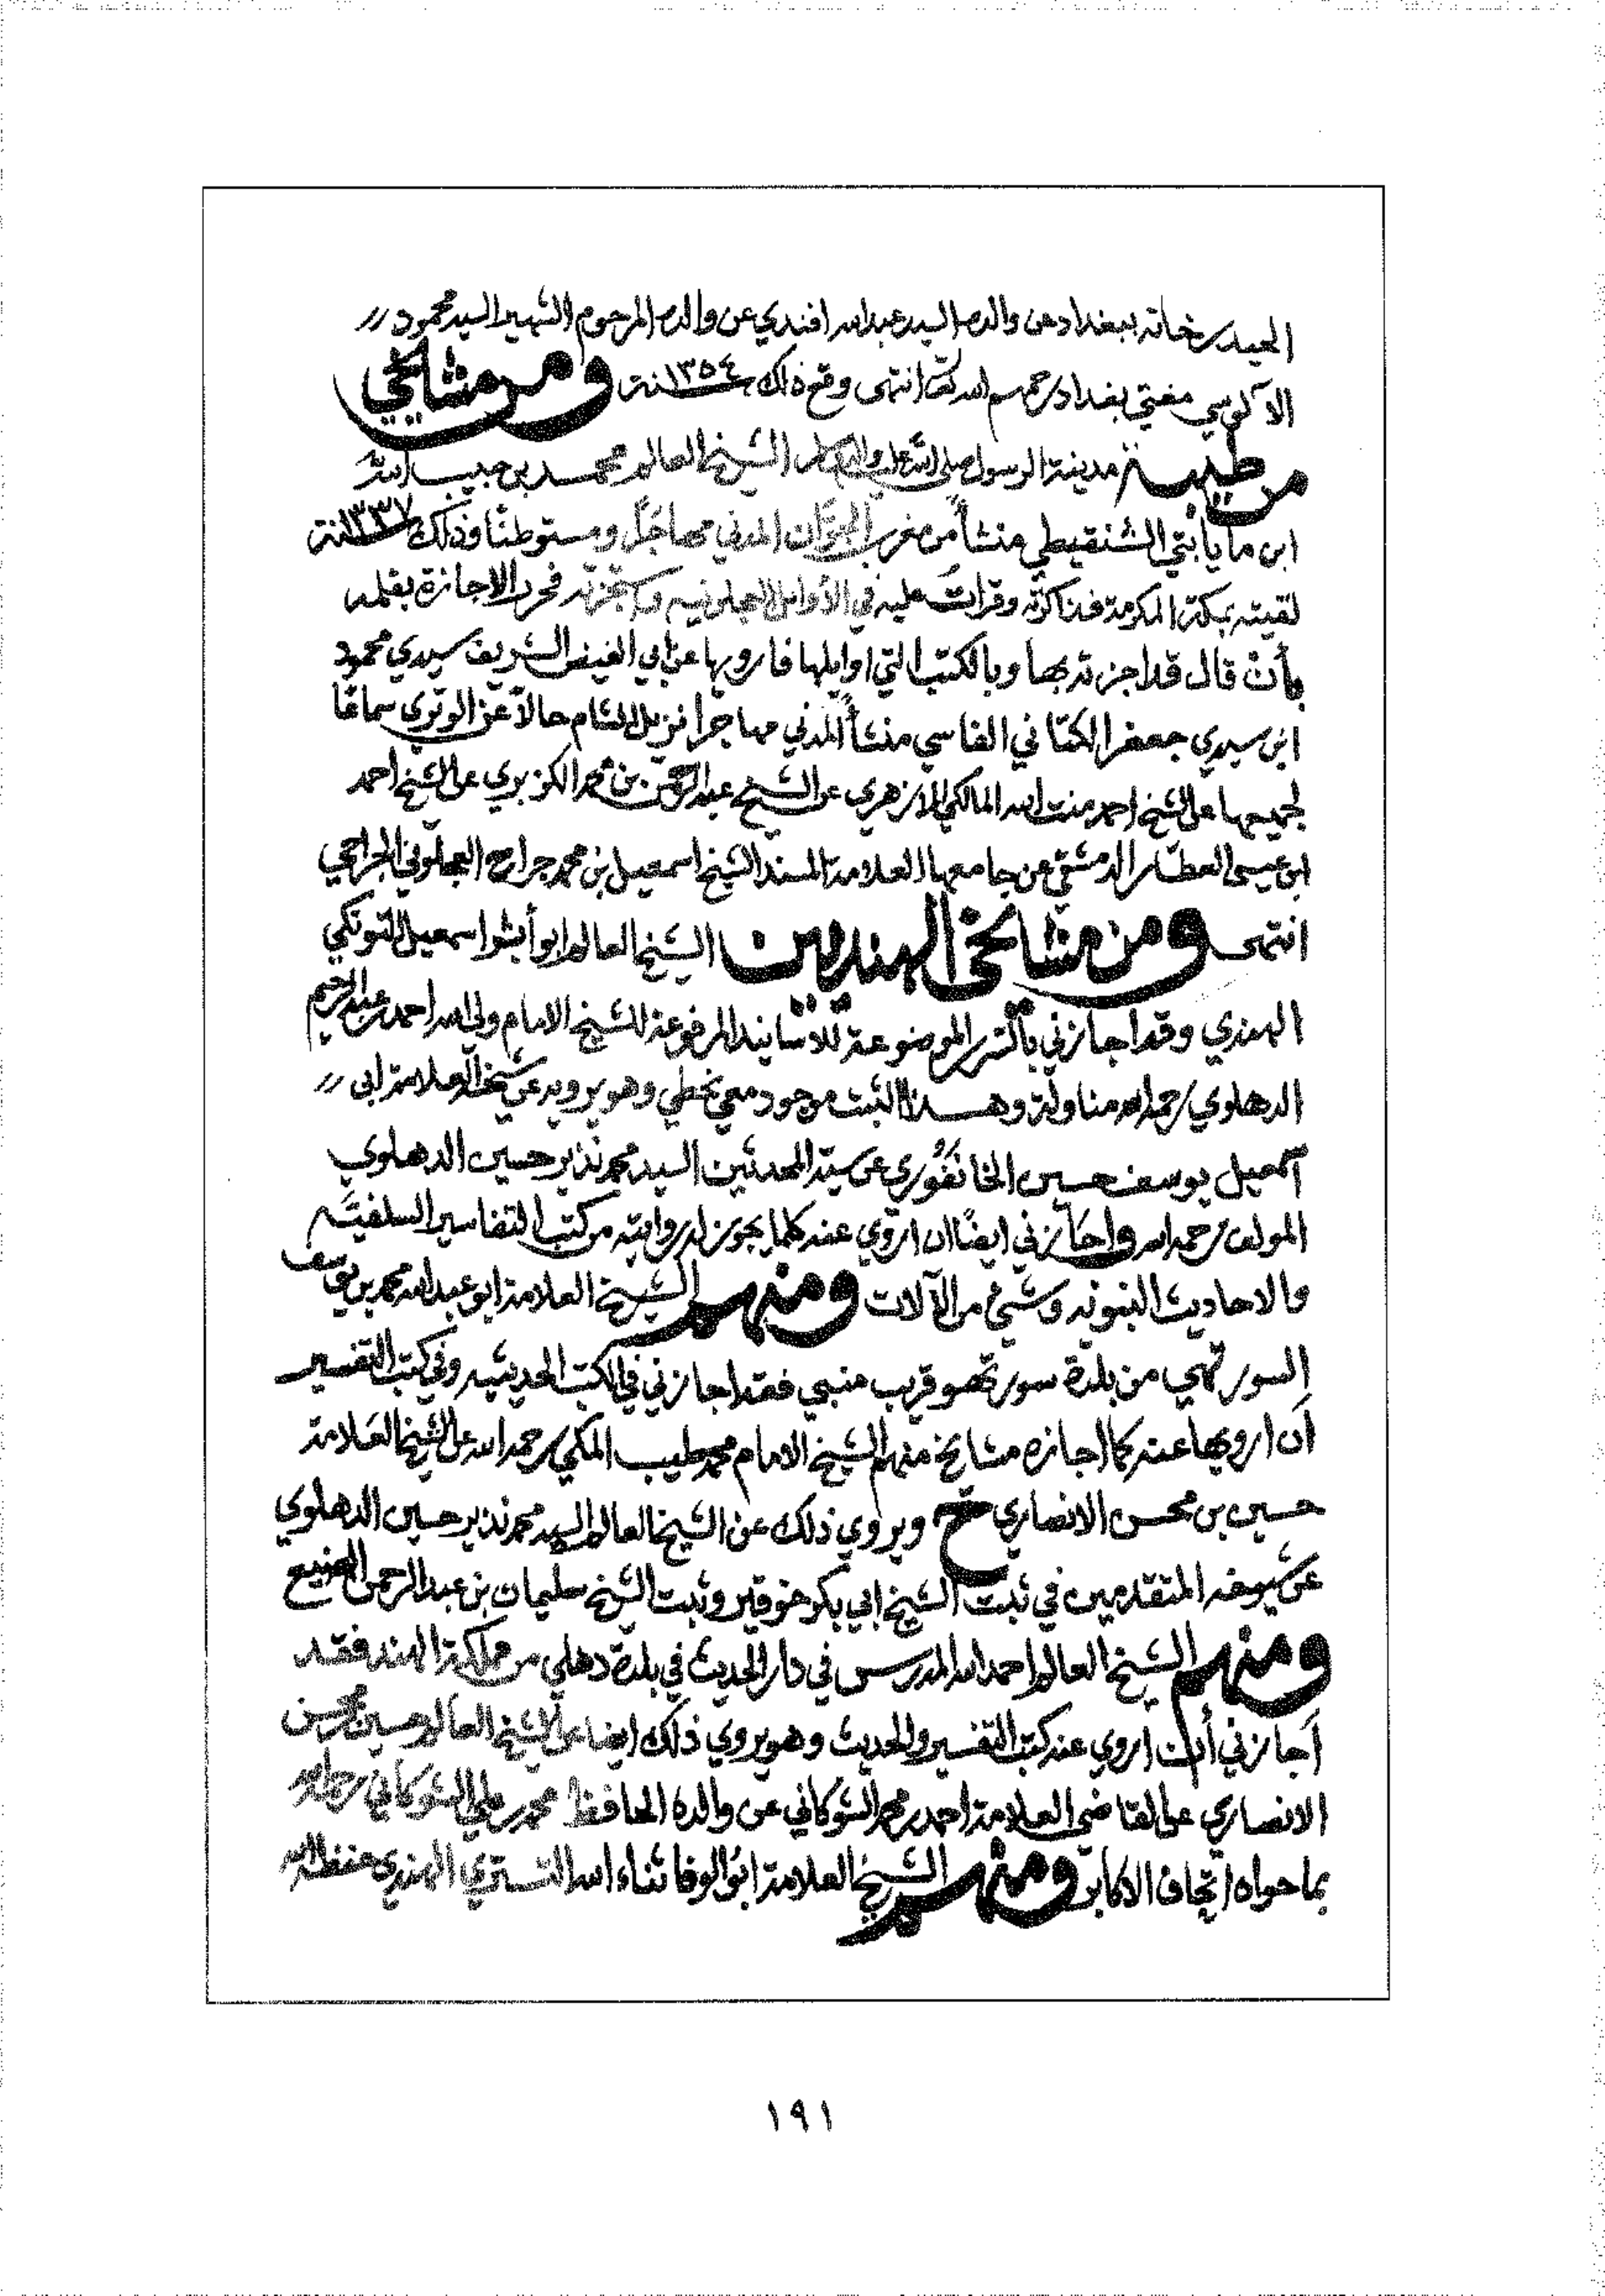 الحيدرخانه ببغداد عن والده السيد عبدالله افندي عن والده المرحوم الشهير السيد محمود
الآلوسي مفتي بغداد رحمهم الله تعالى انتهى وقع ذلك سنة ١٣٥٤ ومن مشايخي
من طيبة مدينة الرسول صلى الله عليه وآله وسلم الشيخ العالم محمد بن حبيب الله
ابن مايابي الشنقيطي منشأ من مغرب المدني مهاجرًا ومستوطنًا وذلك سنة ١٣٣٧
لقيته بمكة المكرمة فذاكرته وقرأت عليه في الأوائل العجلونيه واستجزته فحرر الاجازة بقلمه
بأن قال قد اجزته بها وبالكتب التي اوايلها فارويها عن ابي الفيض الشريف سيدي محمود
ابن سيدي جعفر الكتاني الفاسي منشأ المدني مهاجرا نزيل الشام حالاً عن الوتري سماعًا
لجميعها عن الشيخ احمد منت الله المالكي الازهري عن الشيخ عبدالرحمن بن محمد الكزبري عن الشيخ احمد
ابن عيسى العطار الدمشقي عن جامعها العلامة المسند الشيخ اسمعيل بن محمد جراح العجلوني الجراحي
انتهى ومن مشايخي الهنديين الشيخ العالم ابو اسمعيل التونكي
الهندي وقد اجازني الموضوعة للاسانيد المرفوعة للشيخ الامام ولي الله احمد بن عبدالرحيم
الدهلوي رحمه الله مناولة وهذا الثبت موجود معي بخطي وهو يرويه عن شيخه العلامة ابي
اسمعيل يوسف حسين الخانفوري عن سيد المحدثين السيد محمد نذير حسين الدهلوي
المولف رحمه الله واجازني ايضًا ان اروي عنه كلما يجوز له روايته من كتب التفاسير السلفية
والاحاديث النبويه وشيء من الآلات ومنهم الشيخ العلامة ابو عبدالله محمد بن يوسف
السورتي من بلدة سورتهو قريب منبي فقد اجازني في الكتب الحديثيه وفي كتب التفسير
أن ارويها عنه كما اجازه مشايخ منهم الشيخ الامام محمد طيب المكي رحمه الله عن الشيخ العلامة
حسين بن محسن الانصاري ح ويروي ذلك عن الشيخ العالم السيد محمد نذير حسين الدهلوي
عن شيوخه المتقدمين في ثبت الشيخ ابي بكر خوقير وثبت الشيخ سليمان بن عبدالرحمن الصنيع
ومنهم الشيخ العالم احمد الله المدرس في دار الحديث في بلدة دهلي من مملكة الهند فقد
أجازني أن اروي عنه كتب التفسير والحديث وهو يروي ذلك ايضا عن الشيخ العالم حسين بن محسن
الانصاري عن القاضي العلامة احمد بن محمد الشوكاني عن والده الحافظ محمد بن علي الشوكاني رحمه الله
بما حواه اتحاف الاكابر ومنهم الشيخ العلامة ابو الوفا ثناء الله التستري الهندي حفظه الله
١٩١